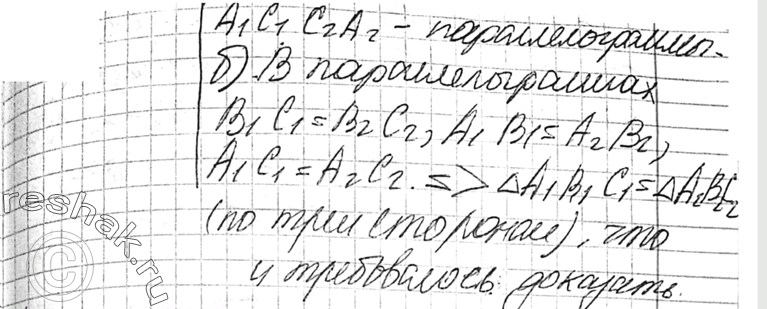 A₁C₁C₂A₂ - параллелограммы.
б) В параллелограммах
B₁C₁=B₂C₂, A₁B₁=A₂B₂,
A₁C₁=A₂C₂. => ΔA₁B₁C₁=ΔA₂B₂C₂
(по трем сторонам), что
и требовалось доказать.
©reshak.ru